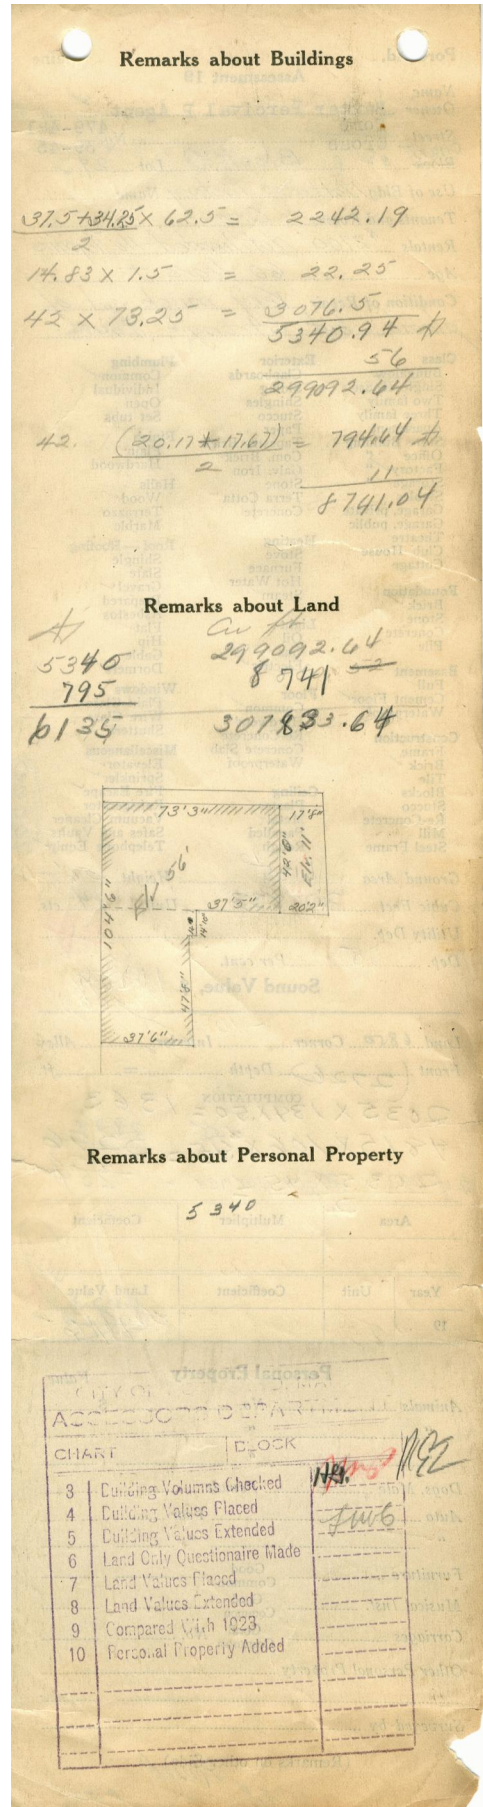 Remarks about Buildings
37.5+34.25 × 62.5 = 2242.19
2
14.83 × 1.5 = 22.25
42 × 73.25 = 3076.5
5340.94
56
299092.64
42. (20.17+17.67) = 794.64
2
11
8741.04
Remarks about Land
Cu ft
5340 299092.64
795 8741
6135 307833.64
73'3" 17'8"
42'0"
El. 11'
El. 56'
104'6"
37'5" 20'2"
14'10"
47'8"
37'6"
Remarks about Personal Property
5340
CITY OF
ASSESSORS DEPARTMENT
CHART BLOCK
3 Building Volumns Checked
4 Building Values Placed
5 Building Values Extended
6 Land Only Questionaire Made
7 Land Values Placed
8 Land Values Extended
9 Compared With 1923
10 Personal Property Added